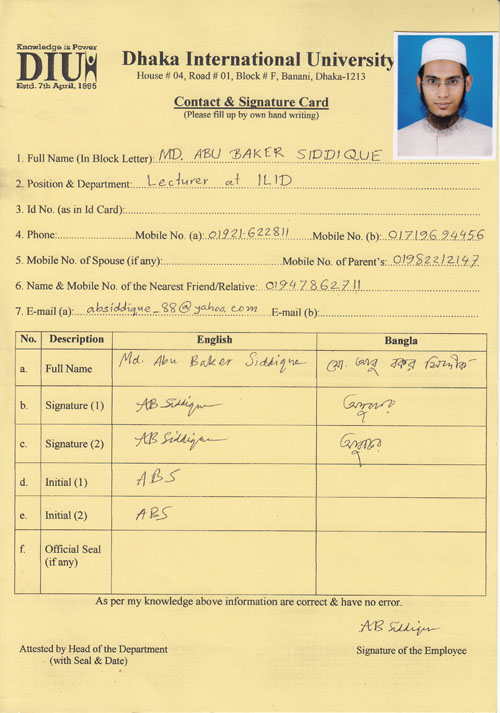 Knowledge is Power
DIU
Estd. 7th April, 1995
Dhaka International University
House # 04, Road # 01, Block # F, Banani, Dhaka-1213
Contact & Signature Card
(Please fill up by own hand writing)
1. Full Name (In Block Letter): MD. ABU BAKER SIDDIQUE
2. Position & Department: Lecturer at ILID
3. Id No. (as in Id Card):
4. Phone: Mobile No. (a): 01921-622811 Mobile No. (b): 01719694456
5. Mobile No. of Spouse (if any): Mobile No. of Parent's: 01982212147
6. Name & Mobile No. of the Nearest Friend/Relative: 01947862711
7. E-mail (a): absiddique_88@yahoo.com E-mail (b):
No. Description English Bangla
a. Full Name Md. Abu Baker Siddique মো. আবু বকর সিদ্দীক
b. Signature (1) AB Siddique
c. Signature (2) AB Siddique
d. Initial (1) ABS
e. Initial (2) ABS
f. Official Seal
(if any)
As per my knowledge above information are correct & have no error.
AB Siddique
Attested by Head of the Department Signature of the Employee
(with Seal & Date)